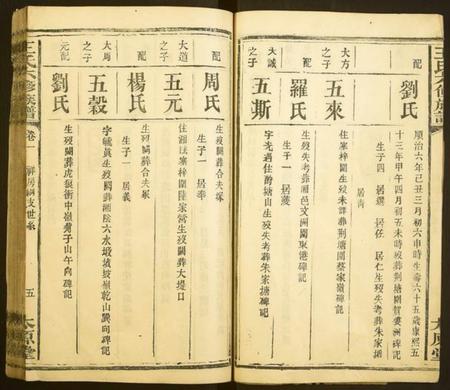 王氏六修族譜
太原堂
配
劉氏
順治六年己丑三月初六申時生壽六十五歲康熙五
十三年甲午四月初五未時歿葬荆塘園賀婁洲碑記
生子四 居選 居任 居仁生歿失考葬朱家塘
居南
大方
之子
五來
住車梓園生歿未詳葬荆塘園蔡家嶺碑記
配
羅氏
生歿失考葬湘邑文洲園取港碑記
生子一
大誠
之子
五斯
字光遇住酌塘山生歿失考葬朱家塘碑記
配
周氏
生歿闕葬合夫塚
生子一 居奉
大道
之子
五元
住湘陰車園陸家營生歿闕葬大堤口
配
楊氏
生歿闕葬合夫塚
生子一 居義
大馬
之子
五穀
字毓真生歿闕葬湘陰六水塅坡嶺乾山巽向碑記
元配
劉氏
生歿闕葬虎狼衝中嶺磡子山午向碑記
王氏六修族譜
卷一
五
太原堂